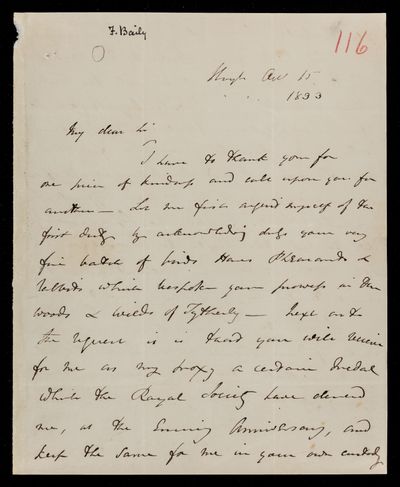 F. Baily
116
Slough Oct 15
1833
My dear Sir
I have to thank you for
one piece of kindness and call upon you for
another — Let me first acquit myself of the
first duty by acknowledging duly your very
fine batch of birds Hares Pheasants &
rabbits which bespoke your prowess in the
woods & wilds of Tytherly — Next as to
the request it is that you will receive
for me as my proxy a certain Medal
which the Royal Society have decreed
me, at the Ensuing Anniversary, and
keep the same for me in your own custody